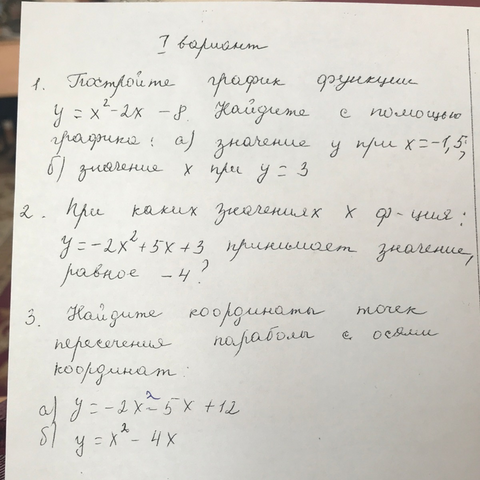 I вариант
1. Постройте график функции
y = x² - 2x - 8. Найдите с помощью
графика: а) значение y при x = -1,5;
б) значение x при y = 3 ?
2. При каких значениях x ф-ция:
y = -2x² + 5x + 3 принимает значение,
равное -4?
3. Найдите координаты точек
пересечения параболы с осями
координат:
а) y = -2x² - 5x + 12
б) y = x² - 4x